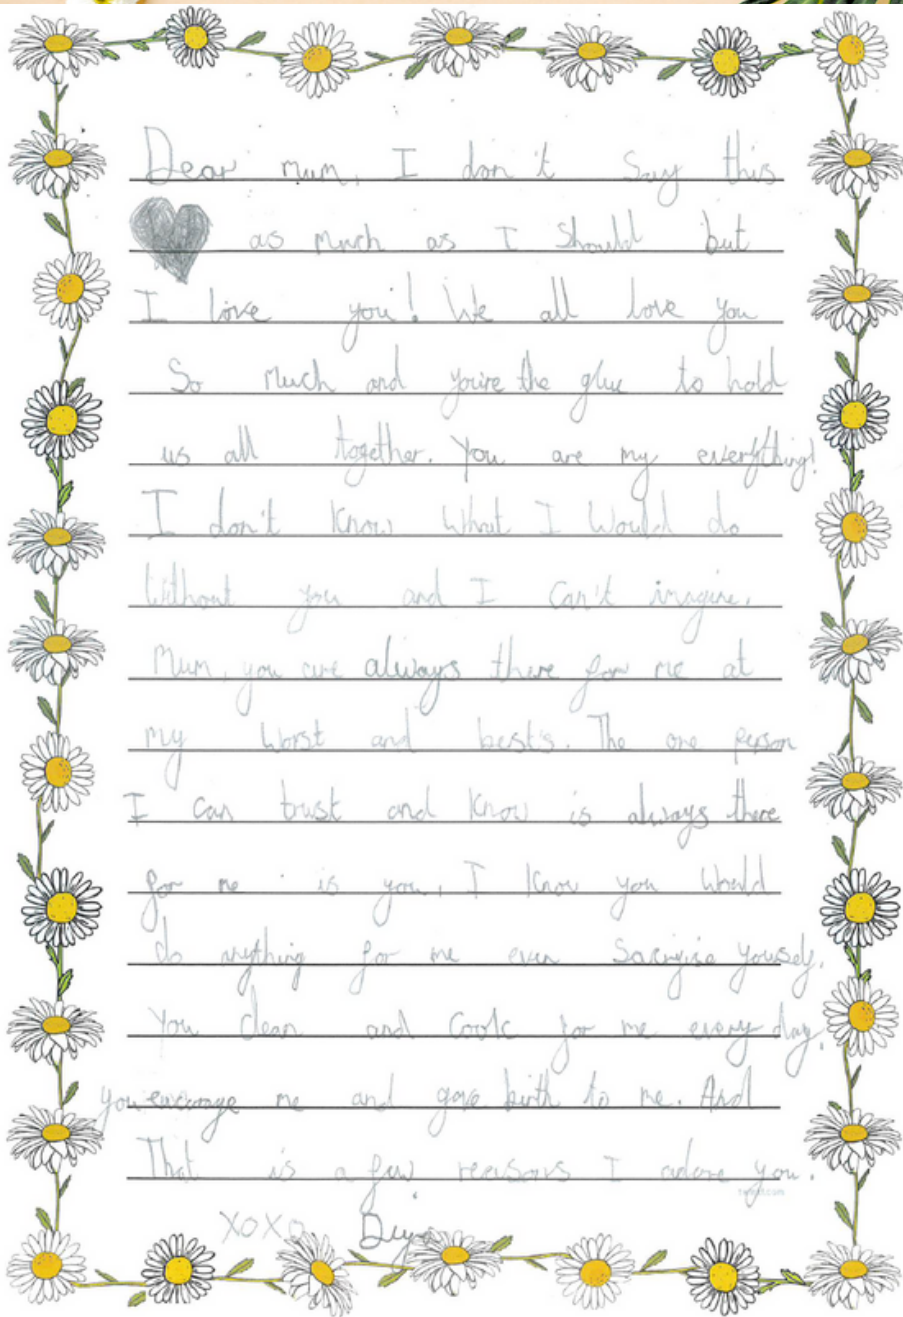 Dear mum, I don't say this
as much as I should but
I love you! We all love you
So much and you're the glue to hold
us all together. You are my everything!
I don't know what I would do
without you and I can't imagine.
Mum, you are always there for me at
my worst and best's. The one person
I can trust and know is always there
for me is you, I know you would
do anything for me even
You clean and cook for me every day,
you me and gave birth to me. And
That is a few reasons I adore you.
XOXO